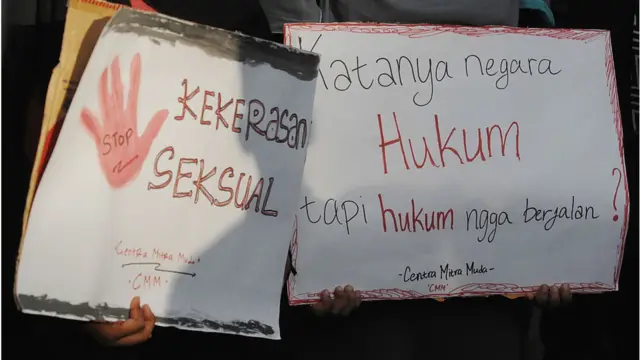 STOP
KEKERASAN
SEKSUAL
Centra Mitra Muda
- CMM -
Katanya negara
Hukum
tapi hukum ngga berjalan ?
- Centra Mitra Muda -
"CMM"